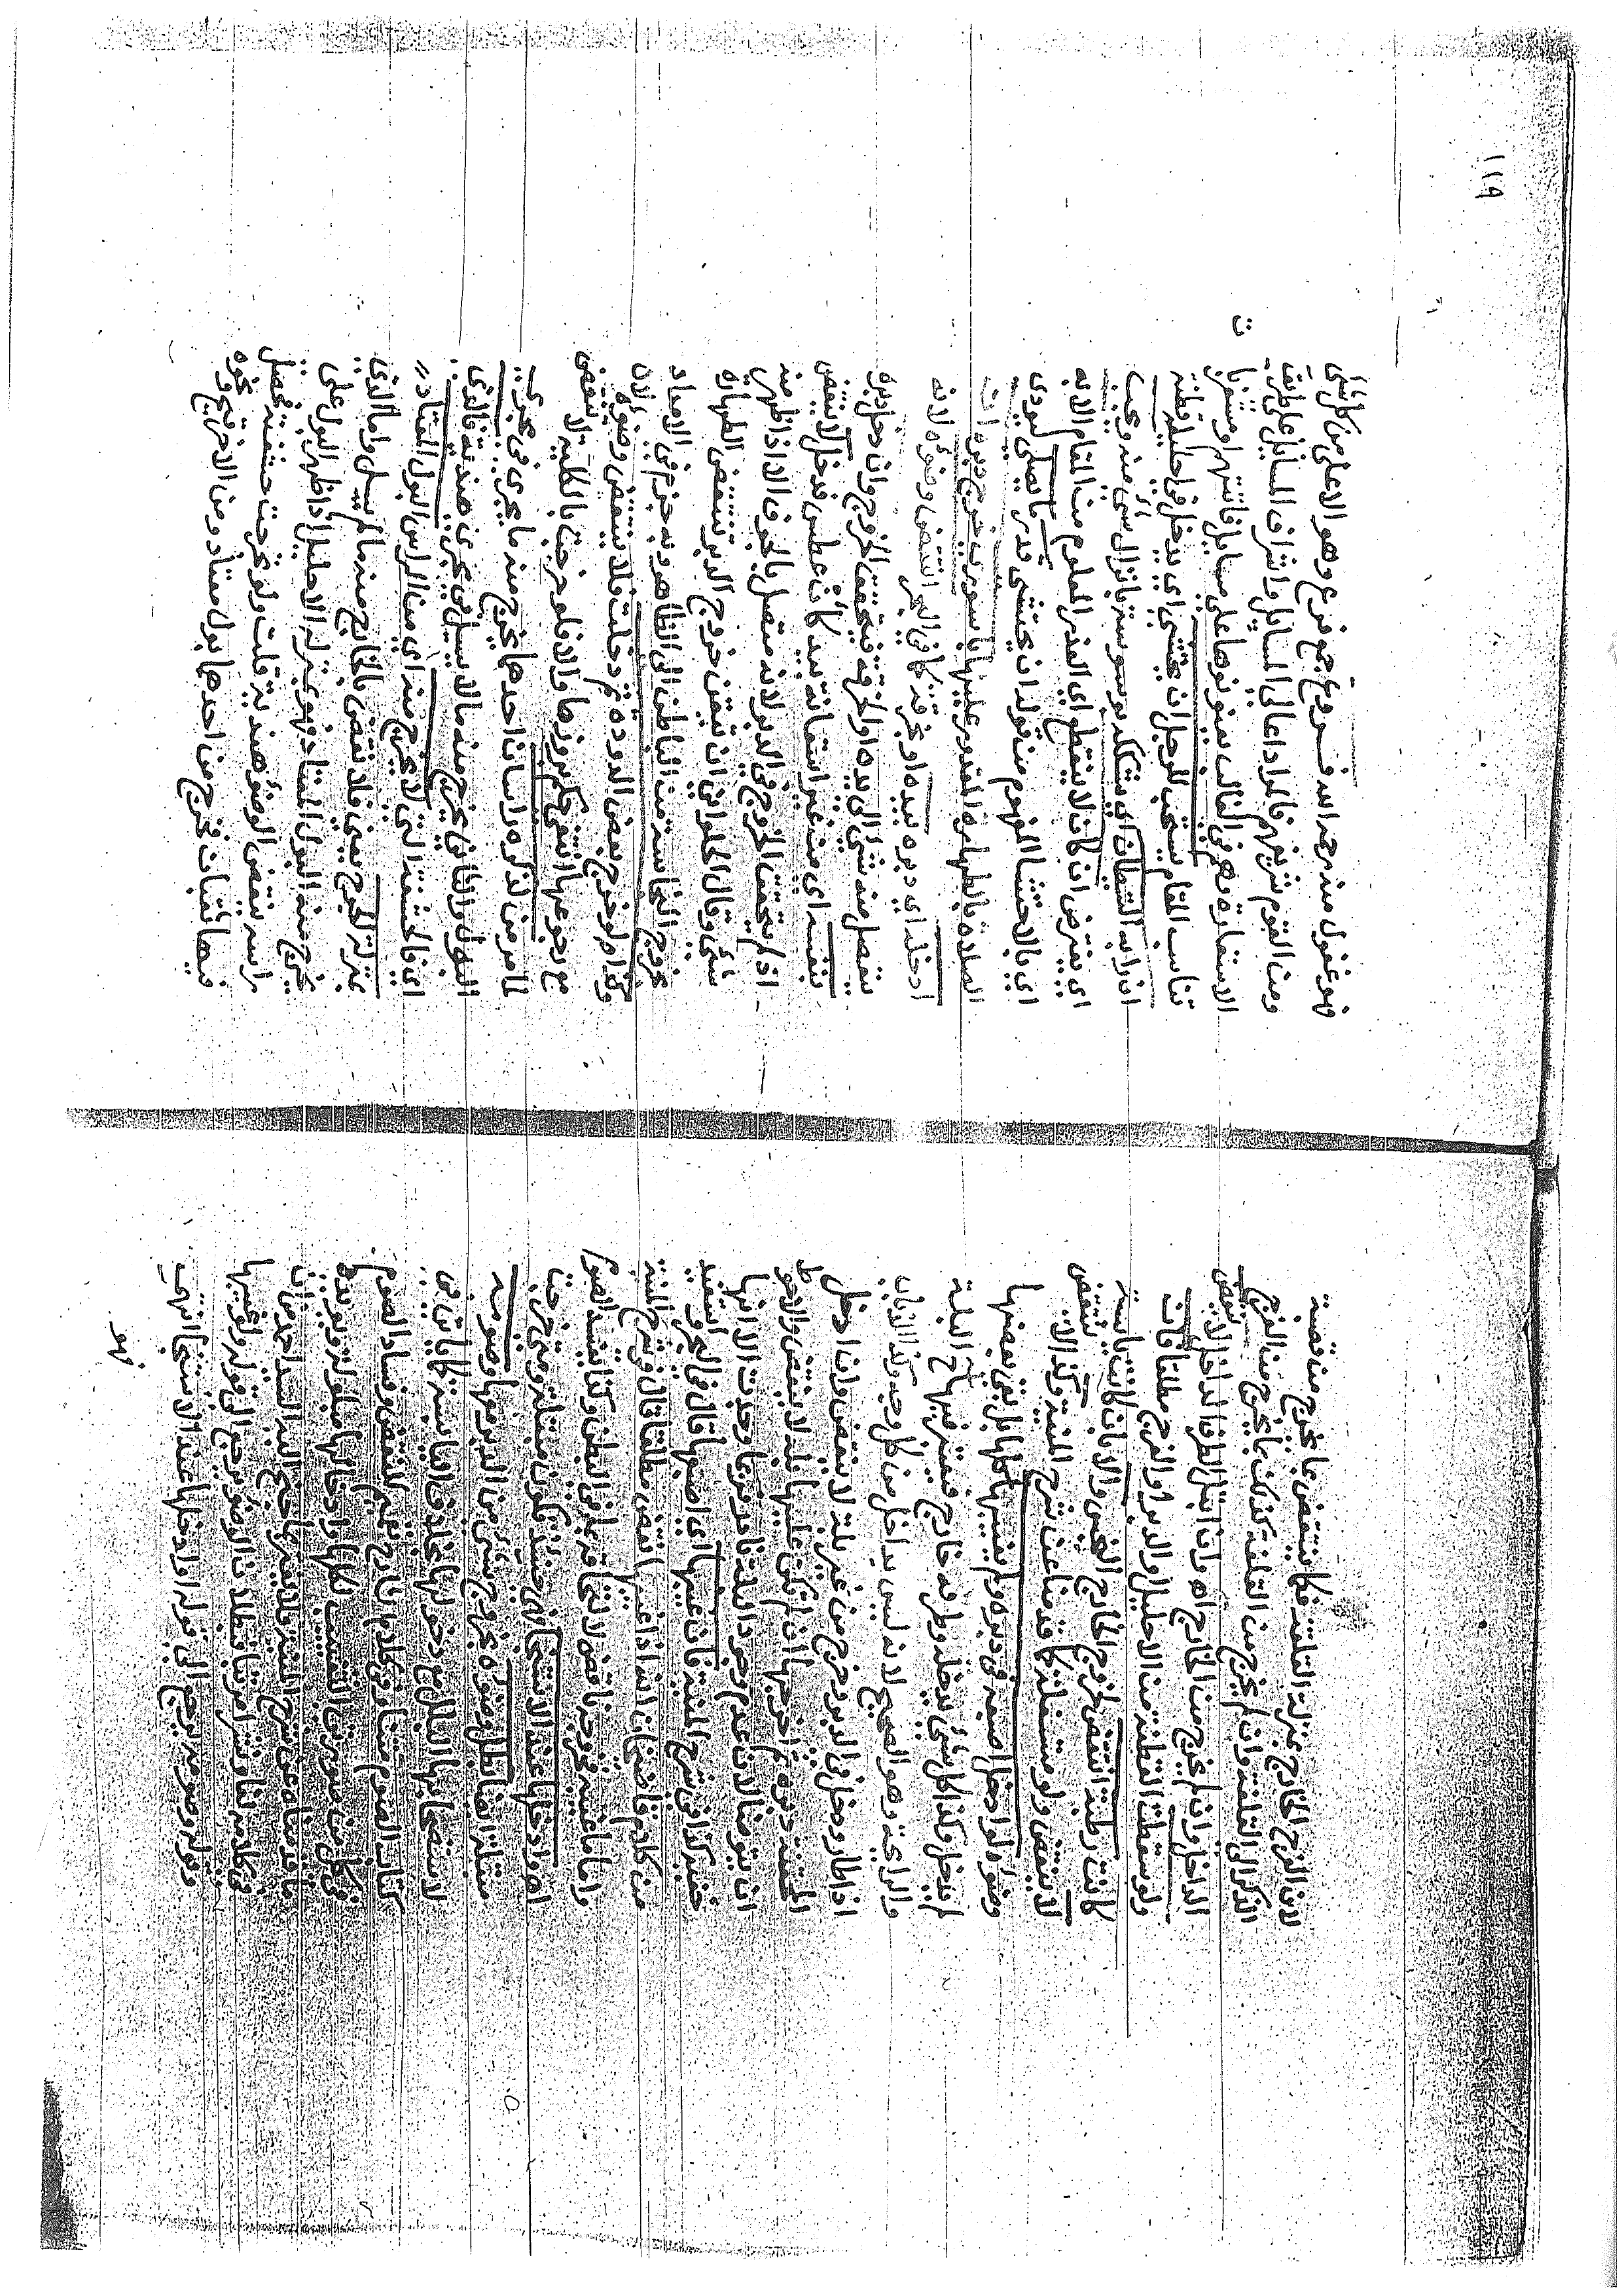 لان الفرج الخارج بمنزلة القلفة فكما ينتقض بما يخرج من قصبة
الذكر الى القلفة وان لم يخرج من القلفة كذلك بما يخرج من الفرج
الداخل وان لم يخرج من الخارج اه وان ابتل الطرف الداخل لا ينقض
ولو سقطت القطنة من الاحليل او الدبر او الفرج مطلقا فان
كانت رطبة انتقض لخروج الخارج النجس والا بان كانت يابسة
لا ينتقض ولو مستفلة كما قدمنا عن شرح المنية وكذا لا ينتقض
وضوءه لو ادخل اصبعه في دبره ولم يغيبها كلها بل بقي بعضها
لم يدخل وكذا كل شئ يدخله وطرفه خارج فيعتبر فيها ح البلة
والرائحة وهو الصحيح لانه ليس بداخل من كل وجه وكذا الذباب
اذا طار ودخل في الدبر وخرج من غير بلة لا ينقض وان ادخل
المحقنة دبره ثم اخرجها ان لم تكن عليها بلة لا ينقض والاحوط
ان يتوضا لان عدم وجود البلة نادر وربما وجدت الا انها
خفية كذا في شرح المنية فان غيبها اي اصبعها قال في البحر
من كلام قاضيخان انه اذا غيبها نقض مطلقا قال في شرح المنية
واما ما غيبه ثم خرج فناقض لالتحاقه بما في البطن وكذا يفسد الصوم
اه او ادخلها عند الاستنجاء فهي حينئذ تكون مبتلة ومتى خرجت
مبتلة ايضا بطل وضوءه بخروج شئ من الدبر معها وصومه
لاستصحابها البلل مع دخولها بخلاف اليابسة كما ياتي في
كتاب الصوم متنا وفي كلامه للنقض وفساد الصوم
في كل من صورتي التغييب لكلها وادخالها مبلولة ويؤيده
ما قدمناه عن شرح المنية فلا يفتقر اليه السيد احمد من ان
في كلامه لفا ونشرا مرتبا فبطلان الوضوء يرجع الى قوله ولو غيبها
وقوله وصومه يرجع الى قوله او ادخلها عند الاستنجاء انتهى
فهو
١١٩
فهو غفول منه رحمه الله فروع جمع فرع وهو الاعلى من كل شئ
ومن القوم شريفهم فالمراد اعالي المسايل واشراف المسايل على طريق
الاستعارة وهو في الغالب يعنونوها على مسايل فاتتهم او مستغربات
تناسب المقام يستحب للرجل ان يحتشي اي يدخل في احليله قطنة
ان رابه الشيطان اي شككه بوسوسته بانزال شئ منه ويجب
اي يفترض ان كان لا ينقطع اي العذر المعلوم من المقام الا به
اي بالاحتشاء المفهوم من قوله ان يحتشي قدر ما يصلي ليودي
الصلاة بالطهارة المقدور عليها باسوري خرج دبره ان
ادخله اي دبره بيده او بخرقة كما في البحر انتقض وضوءه لانه
ينفصل منه شئ الى يده او الخرقة فيتحقق الخروج وان دخل دبره
بنفسه اي من غير استعانة بيد كان عطس فدخل لا ينتقض
اذ لم يتحقق الخروج في الدبر لانه متصل بالجوف الا اذا ظهر منه
شئ وقال الحلواني ان تيقن خروج الدبر تنتقض الطهارة
بخروج النجاسة من الباطن الى الظاهر وبه جزم في الامداد
وكذا لو خرج بعض الدودة ثم دخلت فلا ينتقض وضوءه لان
مع رجوعها انتفى حكم بروزها والا فلو خرجت بالكلية لا ينتقض
لما مر من لذكره راسان احدهما يخرج منه ما يجري في مجرى
البول والثاني يخرج منه ما لا يسيل في مجرى فالذي
اي فالحشفة التي لا يخرج منه اي من الراس البول المعتاد
بمنزلة الجرح يعني فلا نقض بالخارج منه ما لم يسيل واما الذي
يخرج منه البول المعتاد فهو بمنزلة الاحليل اذا ظهر البول على
راسه ينقض الوضوء هندية قلت ولو
فيهما ثقبان فخرج من احدهما بول معتاد ومن الاخر قيح ونحوه